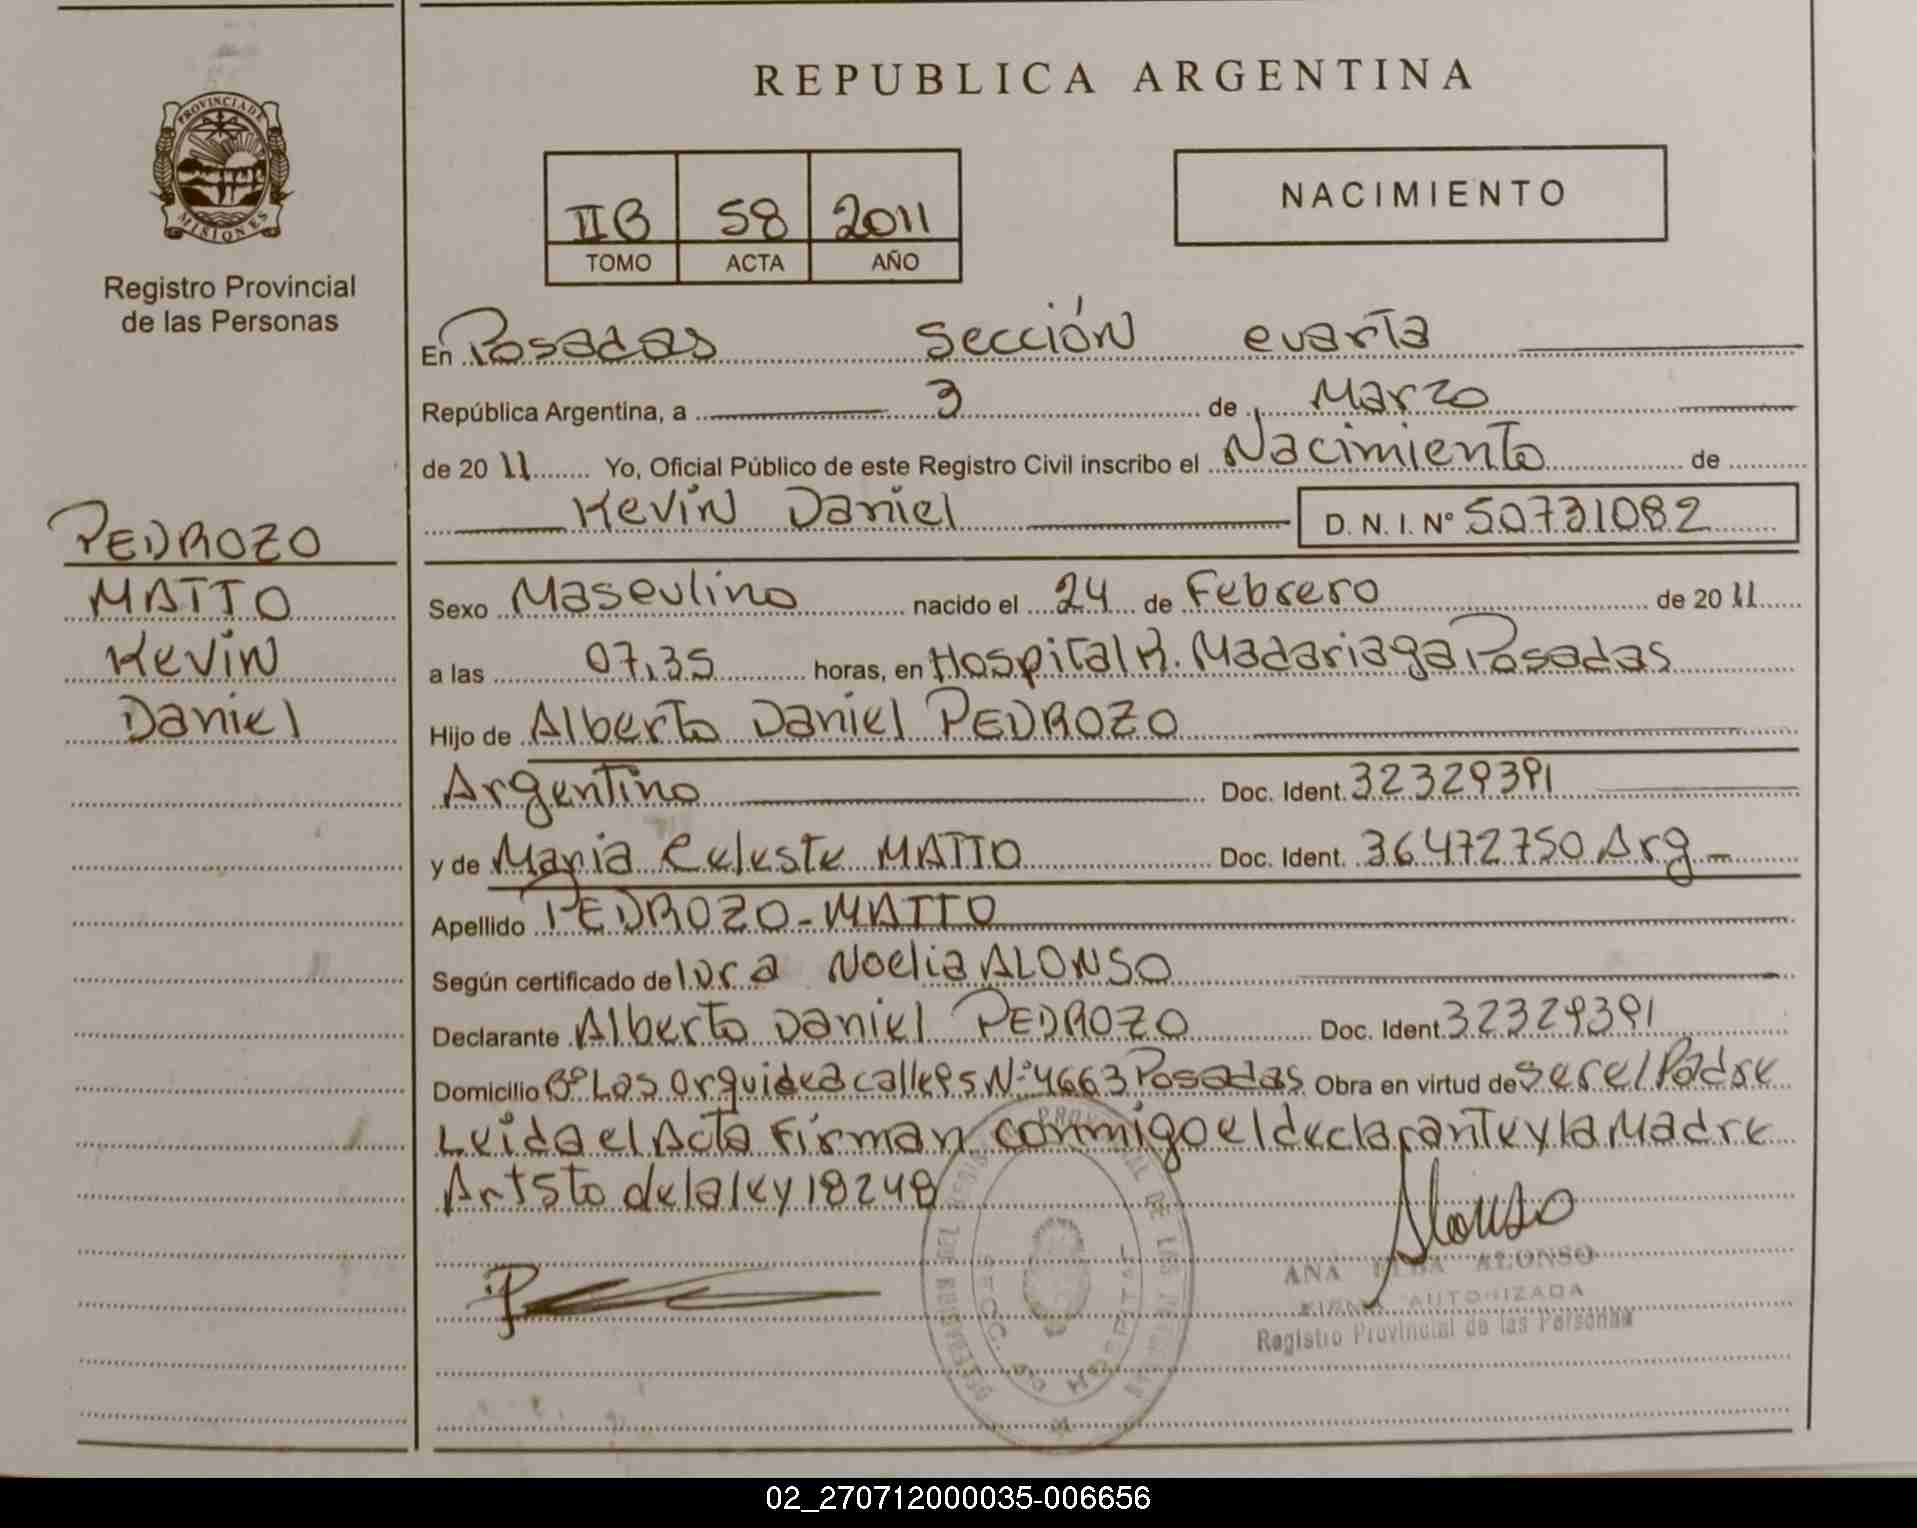 REPUBLICA ARGENTINA
PROVINCIA DE
MISIONES
Registro Provincial
de las Personas
NACIMIENTO
IIB 58 2011
TOMO ACTA AÑO
En Posadas Sección cuarta
República Argentina, a 3 de Marzo
de 2011 Yo, Oficial Público de este Registro Civil inscribo el Nacimiento de
Kevin Daniel D. N. I. Nº 50731082
PEDROZO
MATTO
Kevin
Daniel
Sexo Masculino nacido el 24 de Febrero de 2011
a las 07,35 horas, en Hospital R. Madariaga Posadas
Hijo de Alberto Daniel PEDROZO
Argentino Doc. Ident. 32329391
y de Maria Celeste MATTO Doc. Ident. 36472750 Arg
Apellido PEDROZO-MATTO
Según certificado de Noelia ALONSO
Declarante Alberto Daniel PEDROZO Doc. Ident. 32329391
Domicilio Bº Las Orquidea calle 95 Nº 4663 Posadas Obra en virtud de ser el Padre
Leida el Acta Firman conmigo el declarante y la Madre
Art 5to de la ley 18248
Alonso
ANA ALONSO
FIRMA AUTORIZADA
Registro Provincial de las Personas
02_270712000035-006656